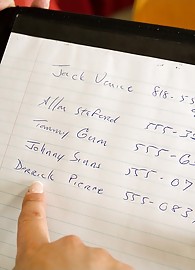 Jack Venice 818-55
Allan Stafford 555-32
Tammy Gum 555-6
Johnny Simms 555-07
Derrick Pierre 555-083